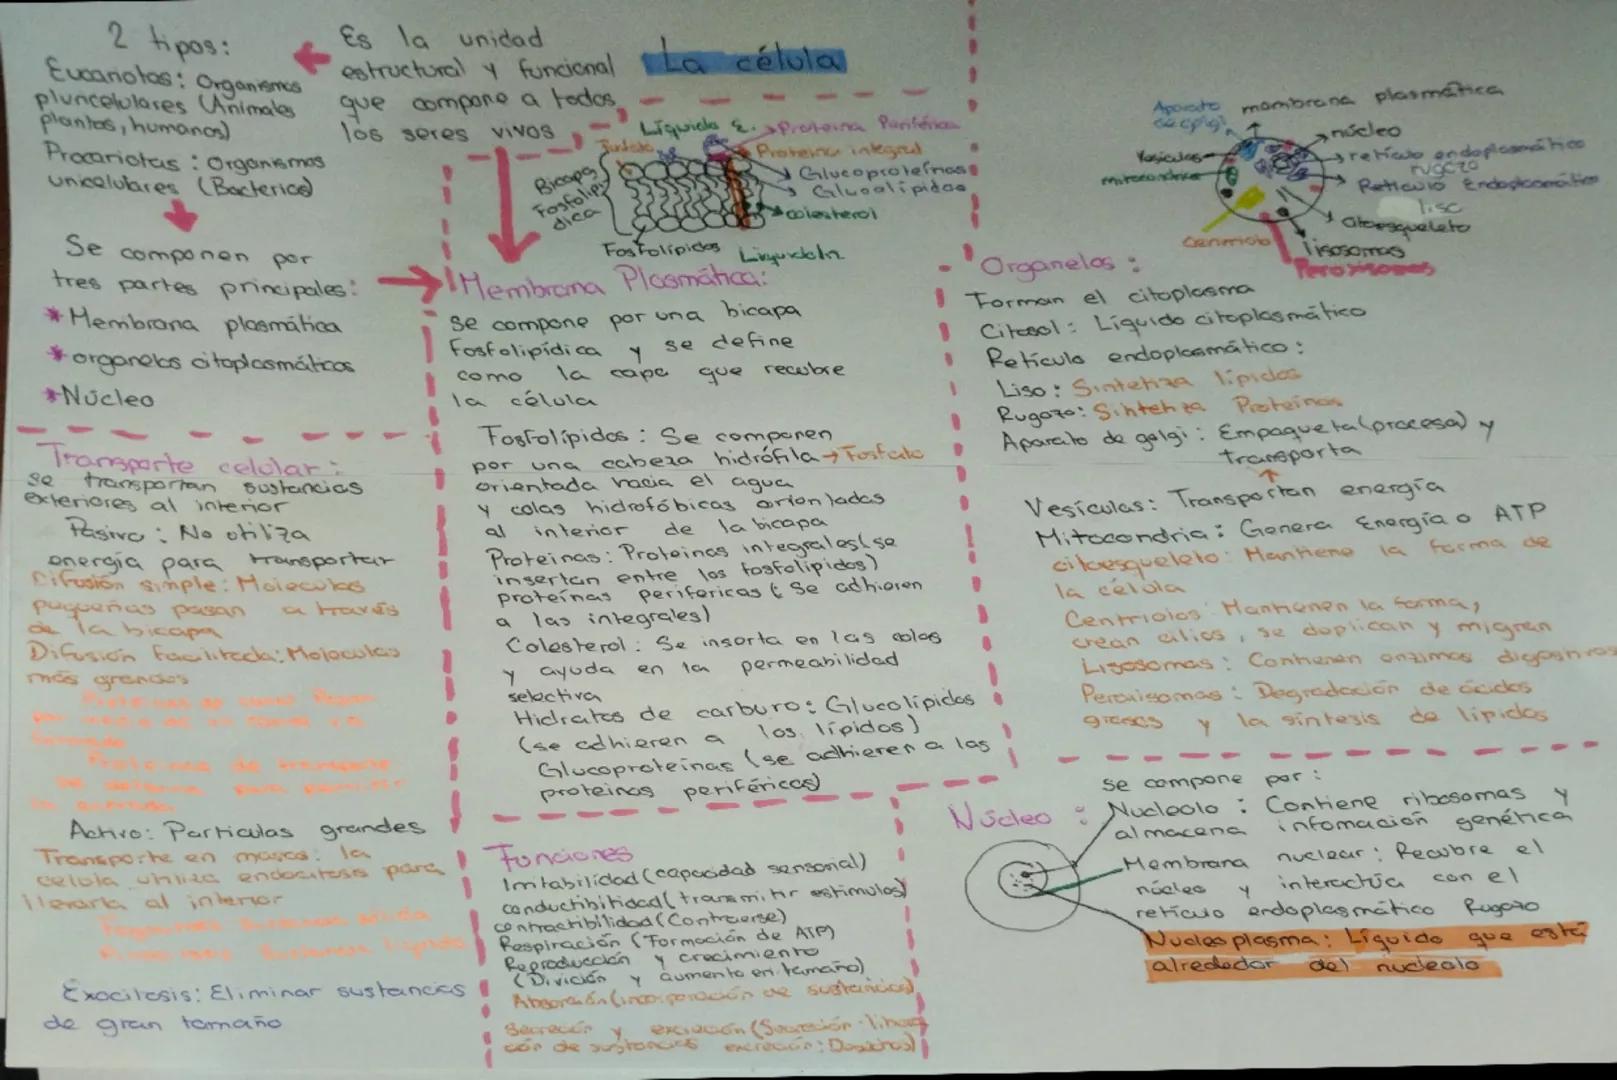 La célula
Es la unidad
estructural y funcional
que compone a todos
los seres vivos
2 tipos:
Eucariotas: Organismos
pluricelulares (Animales
plantas, humanos)
Procariotas: Organismos
unicelulares (Bacterias)
Se componen por
tres partes principales:
* Membrana plasmática
* organelos citoplasmáticos
* Núcleo
Transporte celular:
se transportan sustancias
exteriores al interior
Pasivo: No utiliza
energía para transportar
Difusión simple: Moleculas
pequeñas pasan a través
de la bicapa
Difusión facilitada: Moleculas
más grandes
Proteinas de canal
Proteinas de transporte
Activo: Particulas grandes
Transporte en masa: la
celula utiliza endocitosis para
llevarla al interior
Exocitosis: Eliminar sustancias
de gran tamaño
Líquido E.
Proteina Periférica
Fosfato
Proteina integral
Bicapa
Fosfolipi
dica
Glucoproteínas
Glucolípidos
colesterol
Fosfolípidos
Membrana Plasmática:
se compone por una bicapa
fosfolipídica y se define
como la capa que recubre
la célula
Fosfolípidos: Se componen
por una cabeza hidrófila → Fosfato
orientada hacia el agua
y colas hidrofóbicas orientadas
al interior de la bicapa
Proteinas: Proteinas integrales (se
insertan entre los fosfolipidos)
proteínas perifericas (Se adhieren
a las integrales)
Colesterol: Se inserta en las colas
y ayuda en la permeabilidad
selectiva
Hidratos de carburo: Glucolípidos
(se adhieren a los lípidos)
Glucoproteínas (se adhieren a las
proteinas periféricas)
Funciones
Irritabilidad (capacidad sensorial)
conductibilidad (transmitir estimulos)
contractibilidad (Contraerse)
Respiración (Formación de ATP)
Reproducción y crecimiento
(División y aumento en tamaño)
Absorción (incorporación de sustancias)
Secreción y excreción (Secreción: libera
ción de sustancias excreción: Desechos)
Aparato
de golgi
membrana plasmática
núcleo
Vesículas
retículo endoplasmático
rugozo
mitocondria
Retículo Endoplasmático
liso
citoesqueleto
Centriolo
lisosomas
Peroxisomas
Organelos:
Forman el citoplasma
Citosol: Líquido citoplasmático
Retículo endoplasmático:
Liso: Sintetiza lípidos
Rugozo: Sintetiza Proteínas
Aparato de golgi: Empaqueta (procesa) y
transporta
Vesículas: Transportan energía
Mitocondria: Genera Energía o ATP
citoesqueleto: Mantiene la forma de
la célula
Centriolos: Mantienen la forma,
crean cilios, se duplican y migran
Lisosomas: Contienen enzimas digestivas
Peroxisomas: Degradación de ácidos
grasos y la síntesis de lípidos
Núcleo:
se compone por:
Nucleolo: Contiene ribosomas y
almacena infomación genética
Membrana nuclear: Recubre el
núcleo y interactúa con el
retículo endoplasmático Rugozo
Nucleoplasma: Líquido que está
alrededor del nucleolo